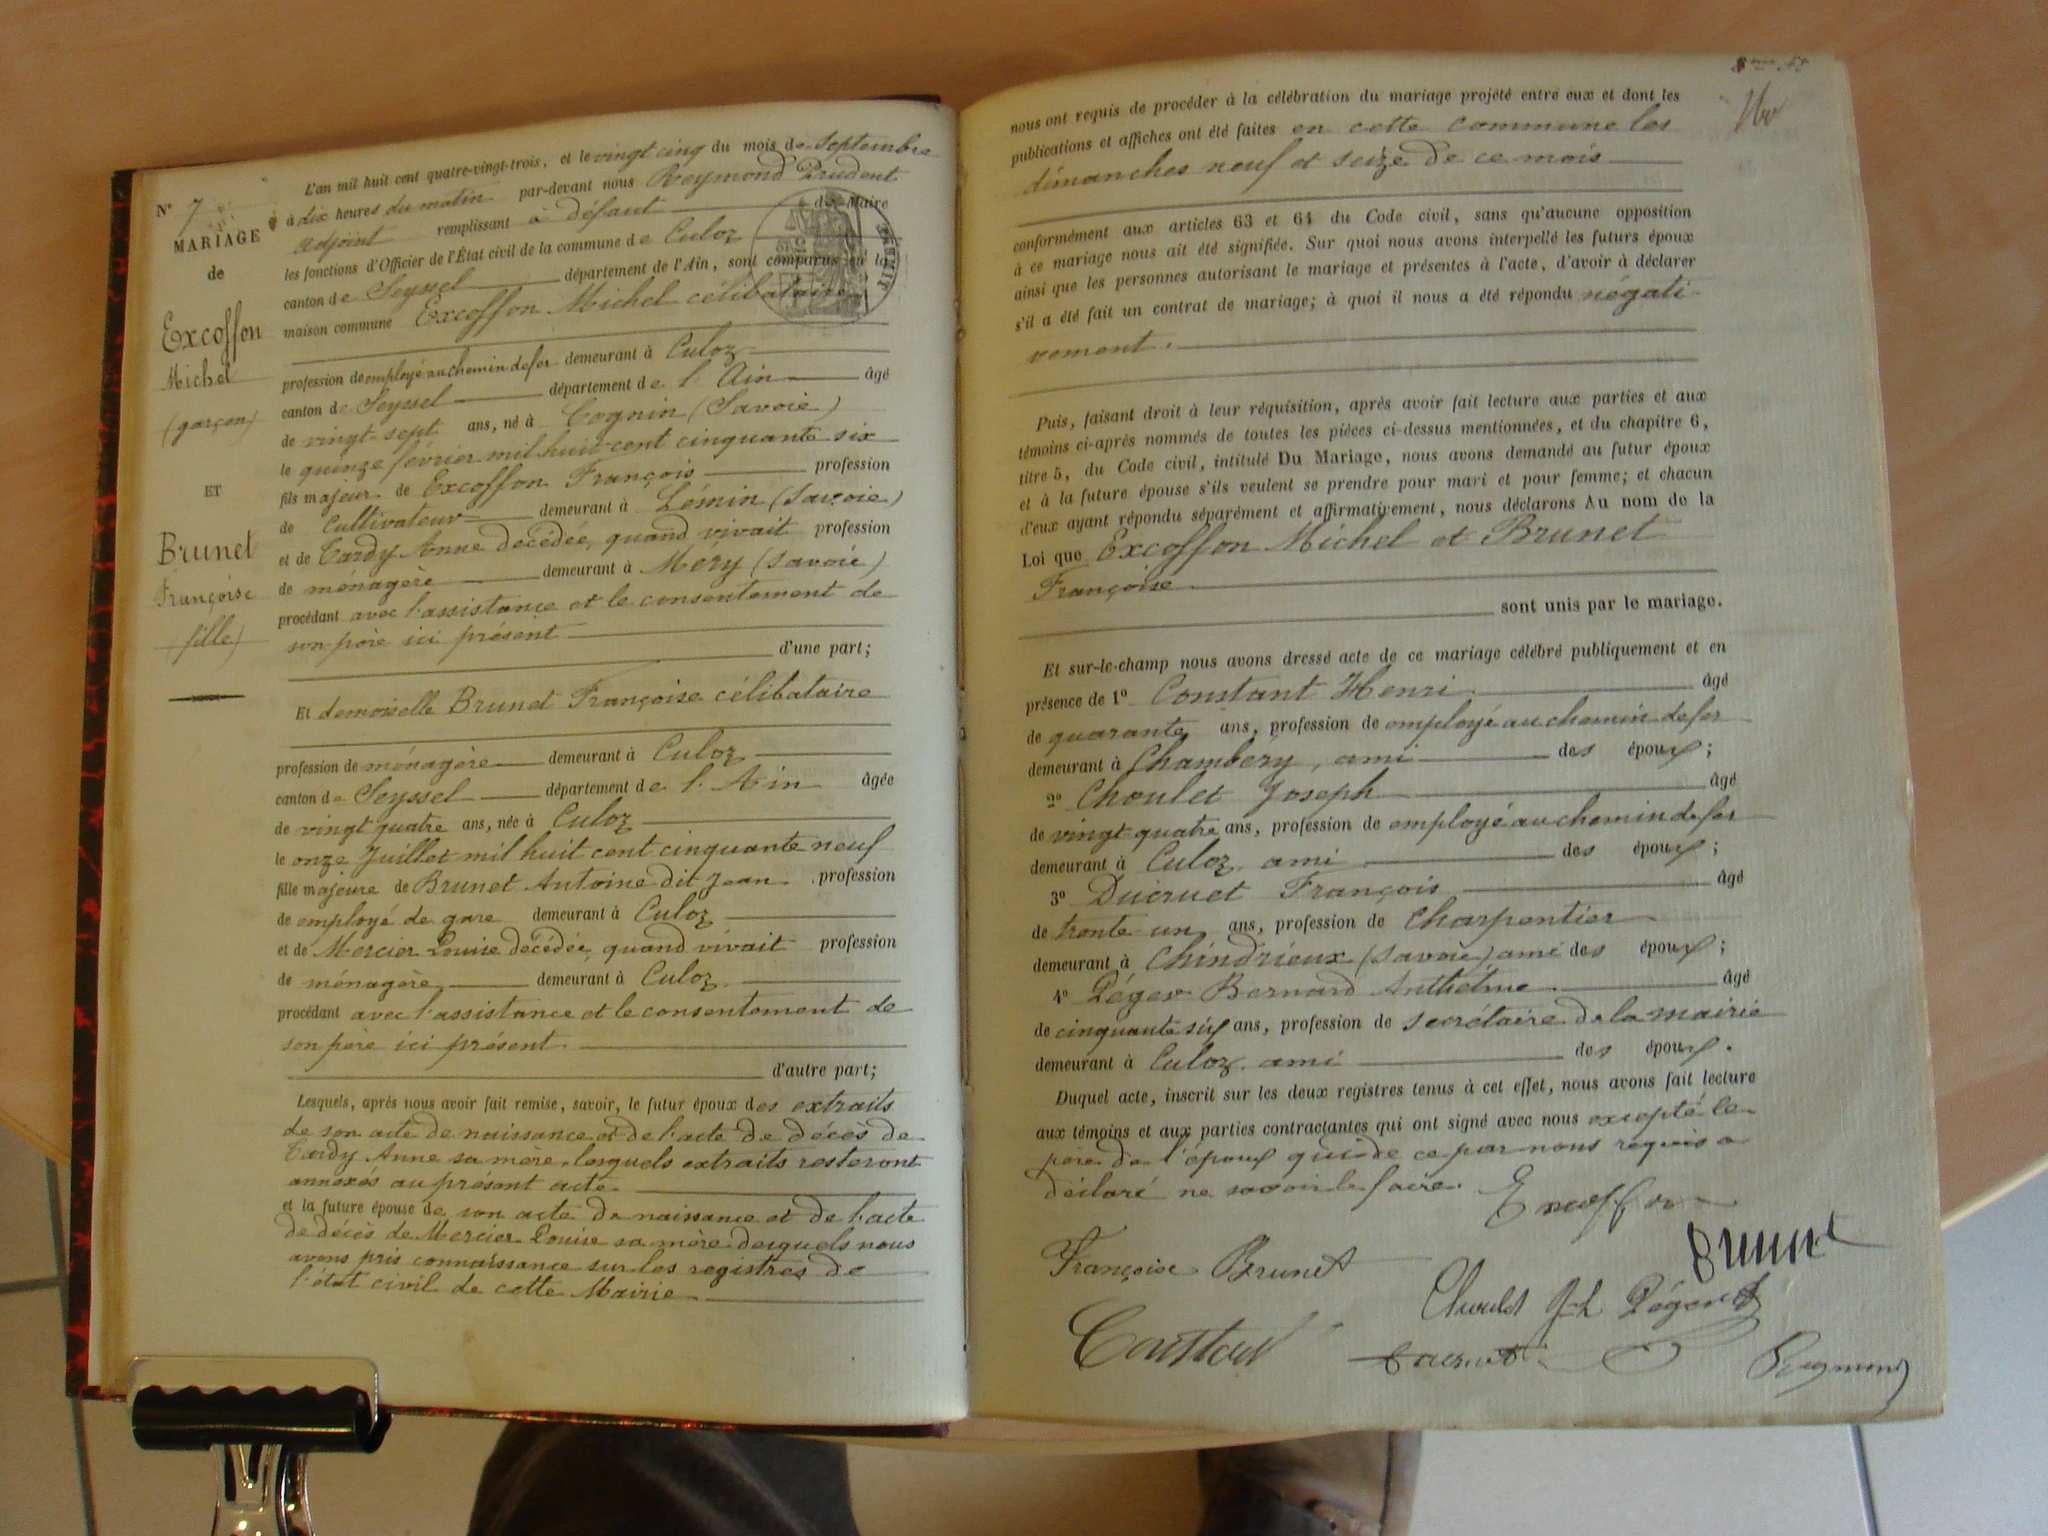 L'an mil huit cent quatre-vingt-trois, et le vingt cinq du mois de Septembre
à dix heures du matin par-devant nous Reymond Prudent
adjoint remplissant à défaut de Maire
les fonctions d'Officier de l'État civil de la commune de Culoz
canton de Seyssel département de l'Ain, sont comparus en la
maison commune Excoffon Michel célibataire
profession de employé au chemin de fer demeurant à Culoz
canton de Seyssel département de l'Ain âgé
de vingt-sept ans, né à Cognin (Savoie)
le quinze fevrier mil huit cent cinquante six
fils majeur de Excoffon François profession
de Cultivateur demeurant à Lémin (Savoie)
et de Tardy Anne decédée, quand vivait profession
de ménagère demeurant à Méry (Savoie)
procédant avec l'assistance et le consentement de
son père ici présent
d'une part;
Et demoiselle Brunet Françoise célibataire
profession de ménagère demeurant à Culoz
canton de Seyssel département de l'Ain âgée
de vingt quatre ans, née à Culoz
le onze Juillet mil huit cent cinquante neuf
fille majeure de Brunet Antoine dit Jean profession
de employé de gare demeurant à Culoz
et de Mercier Louise décédée, quand vivait profession
de ménagère demeurant à Culoz
procédant avec l'assistance et le consentement de
son père ici présent
d'autre part;
Lesquels, après nous avoir fait remise, savoir, le futur époux des extraits
de son acte de naissance et de l'acte de décès de
Tardy Anne sa mère, lesquels extraits resteront
annexés au présent acte
et la future épouse de son acte de naissance et de l'acte
de décès de Mercier Louise sa mère desquels nous
avons pris connaissance sur les registres de
l'état civil de cette Mairie
N° 7
MARIAGE
de
Excoffon
Michel
(garçon)
ET
Brunet
Françoise
(fille)
nous ont requis de procéder à la célébration du mariage projeté entre eux et dont les
publications et affiches ont été faites en cette commune les
dimanches neuf et seize de ce mois
conformément aux articles 63 et 64 du Code civil, sans qu'aucune opposition
à ce mariage nous ait été signifiée. Sur quoi nous avons interpellé les futurs époux
ainsi que les personnes autorisant le mariage et présentes à l'acte, d'avoir à déclarer
s'il a été fait un contrat de mariage; à quoi il nous a été répondu négati
vement.
Puis, faisant droit à leur réquisition, après avoir fait lecture aux parties et aux
témoins ci-après nommés de toutes les pièces ci-dessus mentionnées, et du chapitre 6,
titre 5, du Code civil, intitulé Du Mariage, nous avons demandé au futur époux
et à la future épouse s'ils veulent se prendre pour mari et pour femme; et chacun
d'eux ayant répondu séparément et affirmativement, nous déclarons Au nom de la
Loi que Excoffon Michel et Brunet
Françoise
sont unis par le mariage.
Et sur-le-champ nous avons dressé acte de ce mariage célébré publiquement et en
présence de 1° Constant Henri âgé
de quarante ans, profession de employé au chemin de fer
demeurant à Chambéry, ami des époux;
2° Choulet Joseph âgé
de vingt-quatre ans, profession de employé au chemin de fer
demeurant à Culoz ami des époux;
3° Ducruet François âgé
de trente un ans, profession de Charpentier
demeurant à Chindrieux (Savoie) ami des époux;
4° Péger Bernard Anthelme âgé
de cinquante six ans, profession de secrétaire de la mairie
demeurant à Culoz ami des époux.
Duquel acte, inscrit sur les deux registres tenus à cet effet, nous avons fait lecture
aux témoins et aux parties contractantes qui ont signé avec nous excepté le
père de l'époux qui de ce par nous requis a
déclaré ne savoir le faire.
Excoffon
Françoise Brunet
Brunet
Choulet Jh Péger
Constant
Ducruet
Reymond